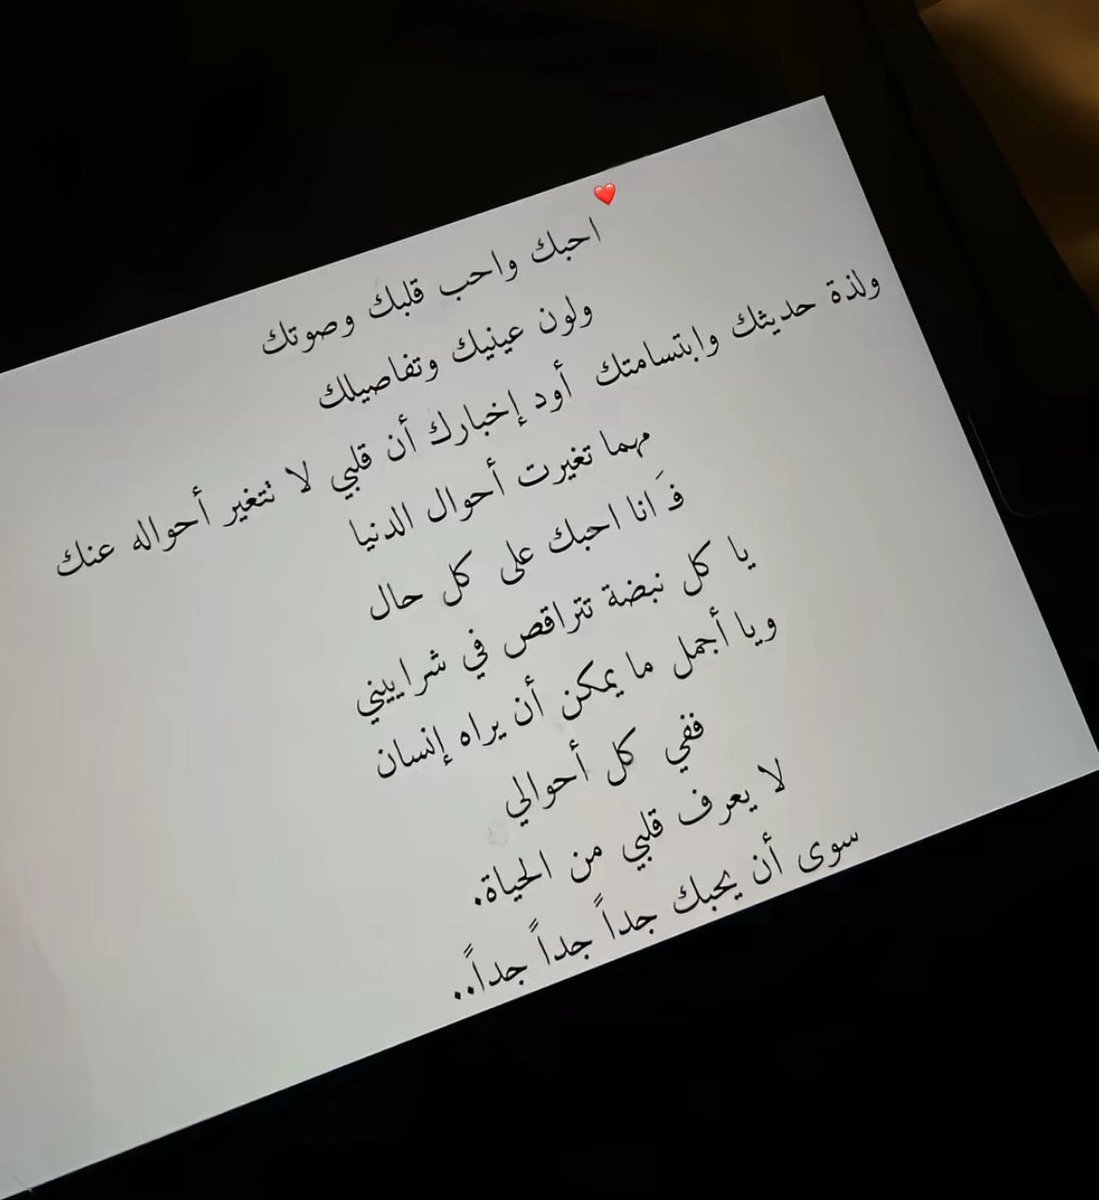 ❤️
احبك واحب قلبك وصوتك
ولون عينيك وتفاصيلك
ولذة حديثك وابتسامتك أود إخبارك أن قلبي لا تتغير أحواله عنك
مهما تغيرت أحوال الدنيا
فَـ انا احبك على كل حال
يا كل نبضة تتراقص في شراييني
ويا أجمل ما يمكن أن يراه إنسان
ففي كل أحوالي
لا يعرف قلبي من الحياة.
سوى أن يحبك جداً جداً جداً..